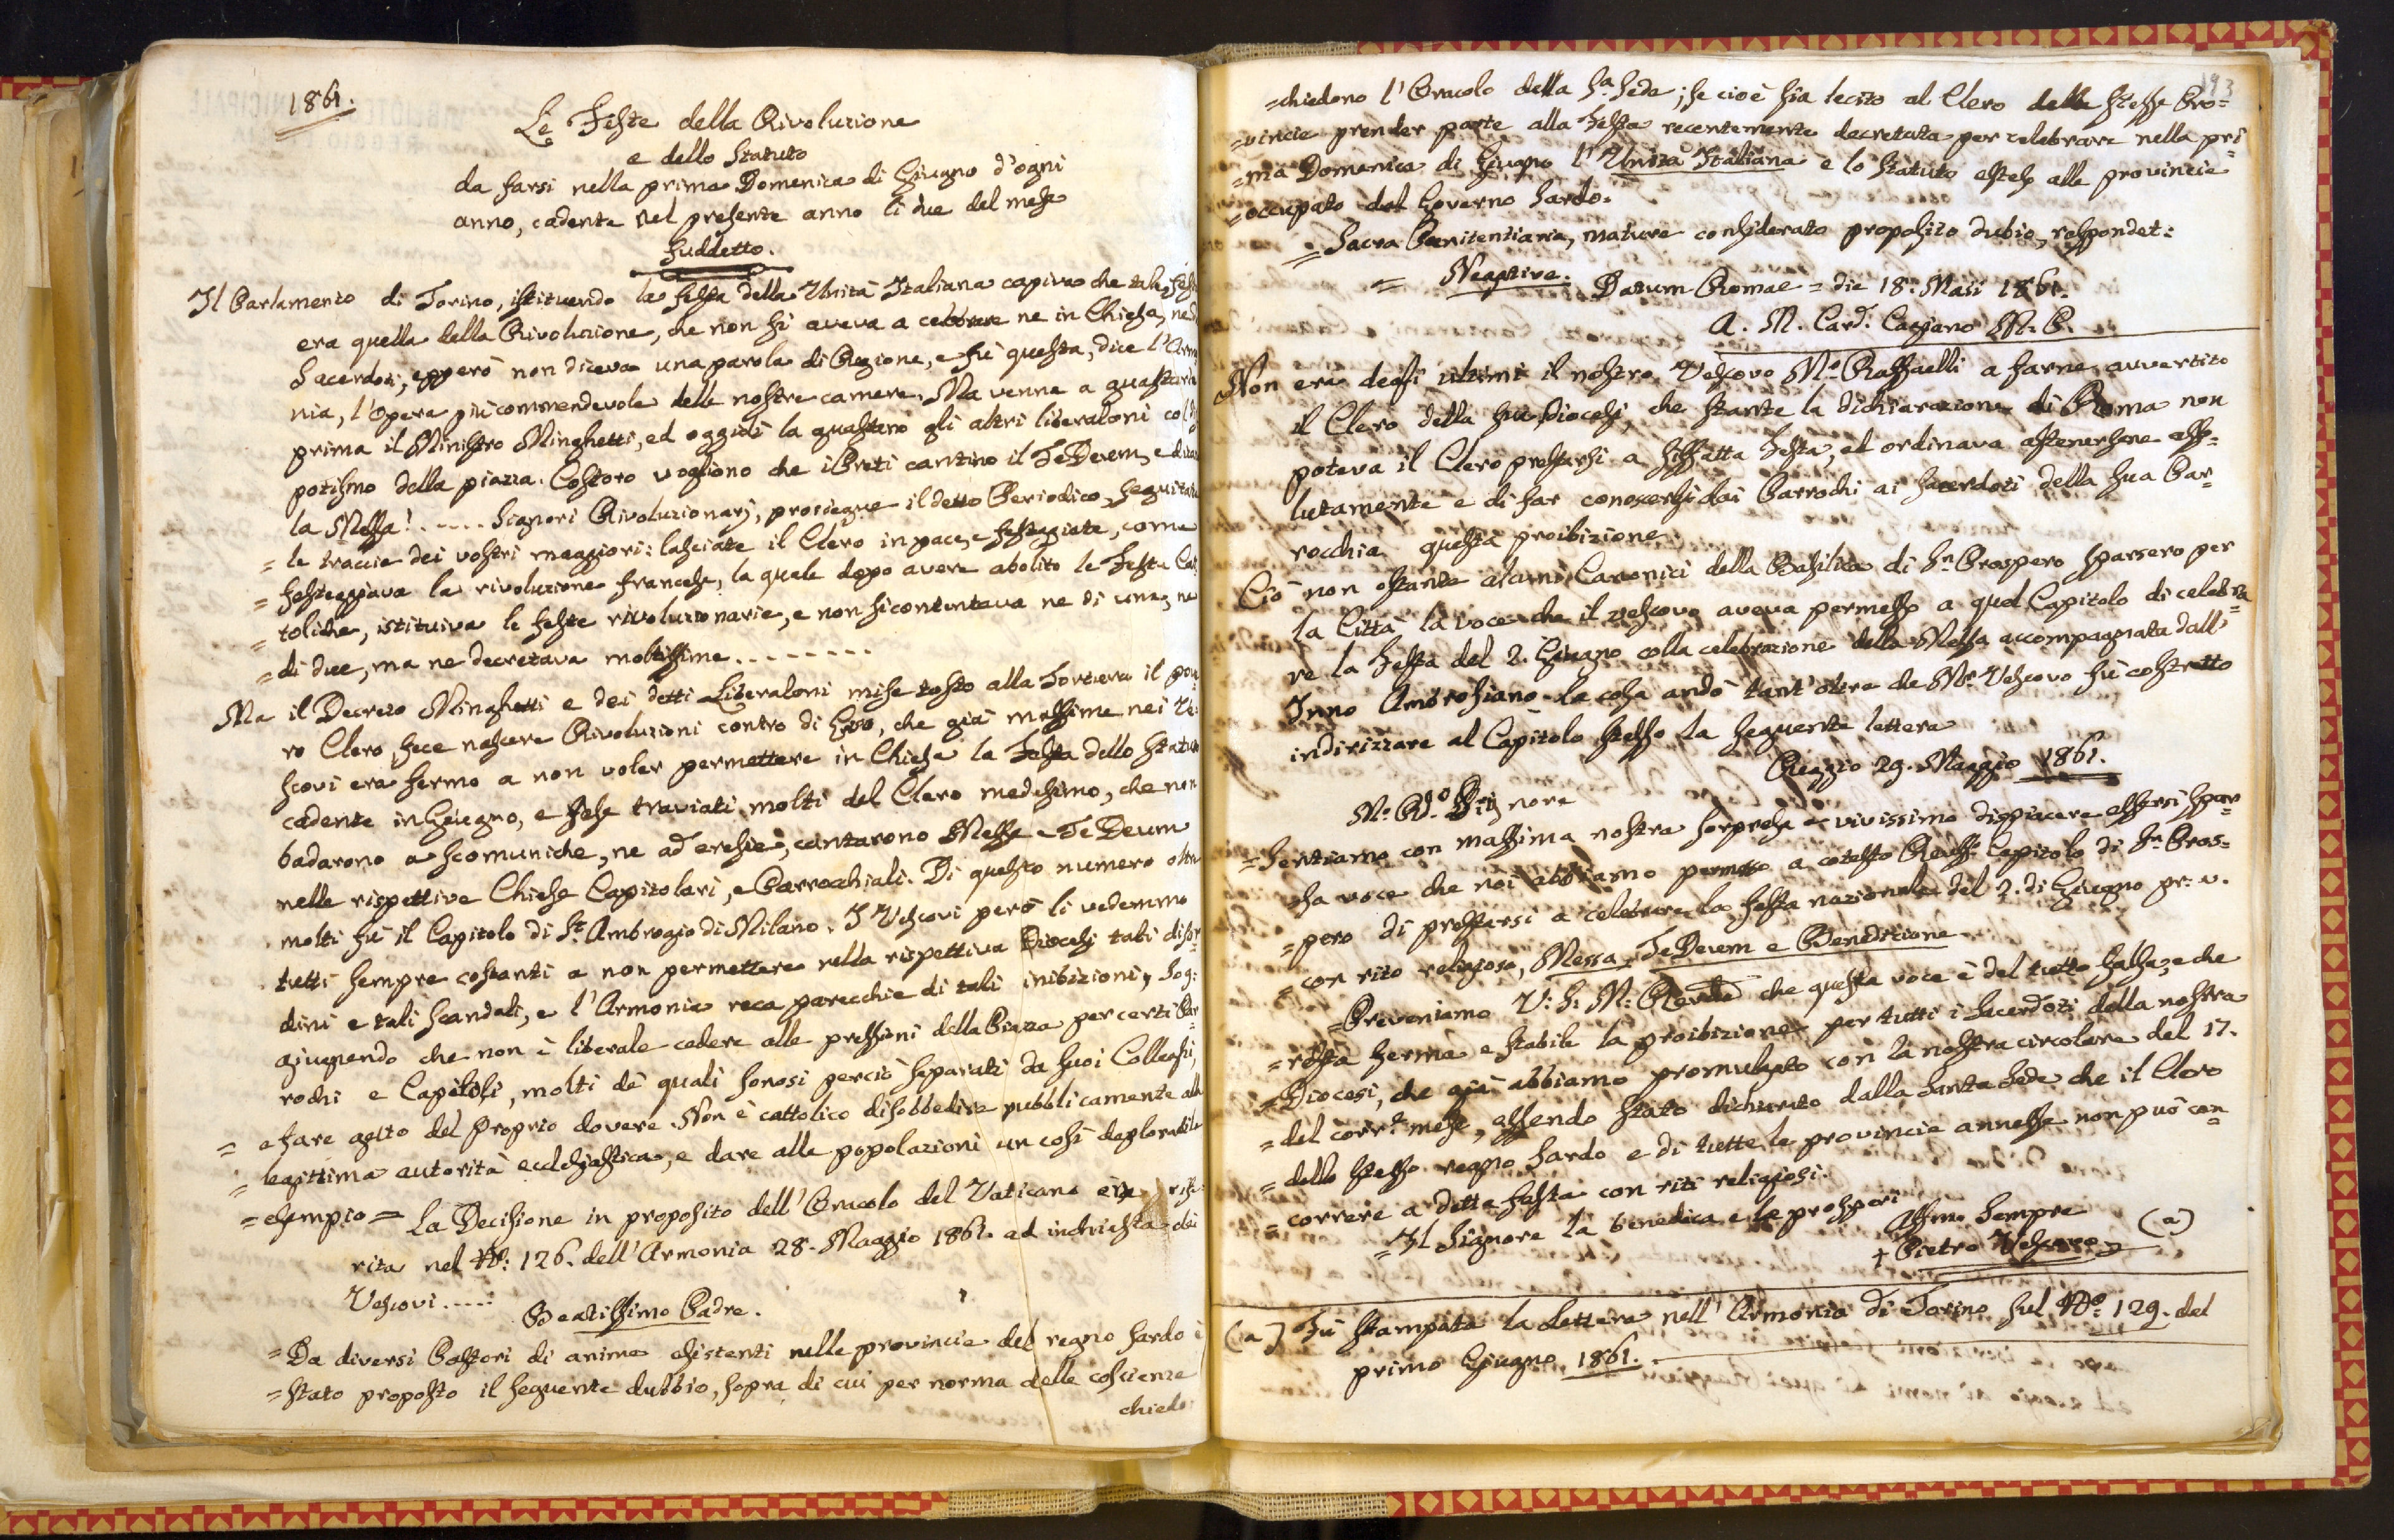 1861.
Le Feste della Rivoluzione
e dello Statuto
da farsi nella prima Domenica di Giugno d'ogni
anno, cadente nel presente anno li due del mese
suddetto.
Il Parlamento di Torino, istituendo la festa della Unità Italiana capiva che tale fes
era quella della Rivoluzione, che non si aveva a celebrare ne in Chiesa, ne
Sacerdoti, epperò non diceva una parola di Regione, e fù questa, dice l'Armo
nia, l'Opera più commendevole delle nostre camere. Ma venne a guastarla
prima il Ministro Minghetti, ed oggidì la guastano gli altri liberaloni col
potismo della piazza. Costoro vogliono che i Preti cantino il TeDeum, e dicano
la Messa! ..... Signori Rivoluzionarj, prosiegue il detto Periodico, seguitate
= le traccie dei vostri maggiori: lasciate il Clero in pace, e festeggiate, come
= festeggiava la rivoluzione francese, la quale dopo avere abolito le Feste Cat
= toliche, istituiva le feste rivoluzionarie, e non si contentava ne di una, ne
= di due, ma ne decretava moltissime ........
Ma il Decreto Minghetti e dei detti Liberaloni mise tosto alla Tortura il pove
ro Clero, fece nascere Rivoluzioni contro di Esso, che già massime nei Ve:
scovi era fermo a non voler permettere in Chiesa la Festa dello Statuto
cadente in Giugno, e fese traviati molti del Clero medesimo, che non
badarono a scomuniche, ne ad eresie, cantarono Messe e TeDeum
nelle rispettive Chiese Capitolari, e Parrochiali. Di questo numero oltre
molti fù il Capitolo di St. Ambrogio di Milano. I Vescovi però li vedemmo
tutti sempre costanti a non permettere nella rispettiva Diocesi tali disor
dini e tali scandali, e l'Armonia reca parecchie di tali inibizioni, sog:
giugnendo che non è liberale cedere alle pressioni della Piazza per certi Par
rochi e Capitoli, molti de' quali sonosi perciò separati da suoi Colleghi,
= e fare getto del proprio dovere. Non è cattolico disobbedire pubblicamente alla
= legittima autorità ecclesiastica, e dare alle popolazioni un così deplorabile
= esempio = La Decisione in proposito dell'Oracolo del Vaticano è rife
rita nel No: 126. dell'Armonia 28. Maggio 1861. ad inchiesta dei
Vescovi .....
Beatissimo Padre.
= Da diversi Pastori di anime esistenti nelle provincie del regno sardo è
= stato proposto il seguente dubbio, sopra di cui per norma delle coscienze
chiedo:
193
= chiedono l'Oracolo della Sa. Sede; se cioè sia lecito al Clero delle stesse Pro=
= vincie prender parte alla Festa recentemente decretata per celebrare nella pri
= ma Domenica di Giugno l'Unità Italiana e lo Statuto esteso alle provincie
= occupate dal Governo Sardo.
= Sacra Penitentiaria, mature considerato proposito dubio, respondet:
= Negative. Datum Romae = die 18: Maii 1861.
A. M. Card. Cagiano M. P.
Non era degli ultimi il nostro Vescovo Mr. Raffaelli a farne avvertito
il Clero della sua Diocesi, che stante la dichiarazione di Roma non
poteva il Clero prestarsi a siffatta Festa, ed ordinava astenersene asso=
lutamente e di far conoscersi dai Parrochi ai sacerdoti della sua Par
rocchia questa proibizione.
Ciò non ostante alcuni Canonici della Basilica di Sn. Prospero sparsero per
la Città la voce che il vescovo aveva permesso a quel Capitolo di celebra
re la Festa del 2. Giugno colla celebrazione della Messa accompagnata dall'
Inno Ambrosiano. La cosa andò tant'oltre che Mr. Vescovo fù costretto
indirizzare al Capitolo stesso la seguente lettera
Reggio 29. Maggio 1861.
= Sentiamo con massima nostra sorpresa e vivissimo dispiacere essersi spar
= sa voce che noi abbiamo permesso a cotesto Revmo. Capitolo di Sn. Pros=
= pero di prestarsi a celebrare la festa nazionale del 2. di Giugno pr. v.
= con rito religioso, Messa, TeDeum e Benedizione.
= Preveniamo V: S: M: Revda. che questa voce è del tutto falsa, e che
= resta ferma e stabile la proibizione per tutti i Sacerdoti della nostra
= Diocesi, che già abbiamo promulgato con la nostra circolare del 17.
= del corre. mese, essendo stato dichiarato dalla Santa Sede che il Clero
= dello stesso regno Sardo e di tutte le provincie annesse non può con
= correre a detta festa con riti religiosi.
= Il Signore la benedica e le prosperi
Affmo. sempre
+ Pietro Vescovo (a)
(a) Fù stampata la Lettera nell'Armonia di Torino sul No: 129. del
primo Giugno 1861.